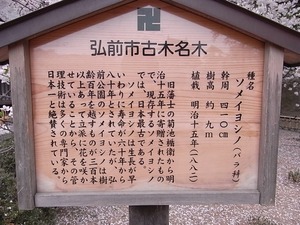 卍
弘前市古木名木
種名
ソメイヨシノ(バラ科)
幹周 四二〇cm
樹高 約九m
植栽 明治十五年(一八八二)
旧藩士の菊池楯衛から明
治十五年に寄贈されたもの
で、現存するソメイヨシノ
では、日本最古である。
ソメイヨシノは生長が早
いわりに寿命が六十年から
八十年といわれていたが、弘
前公園のソメイヨシノは樹
齢百年を越すものが三百本
以上あって立派に花を咲か
せていることから、その管
理技術は多くの専門家から
日本一と絶賛されている。